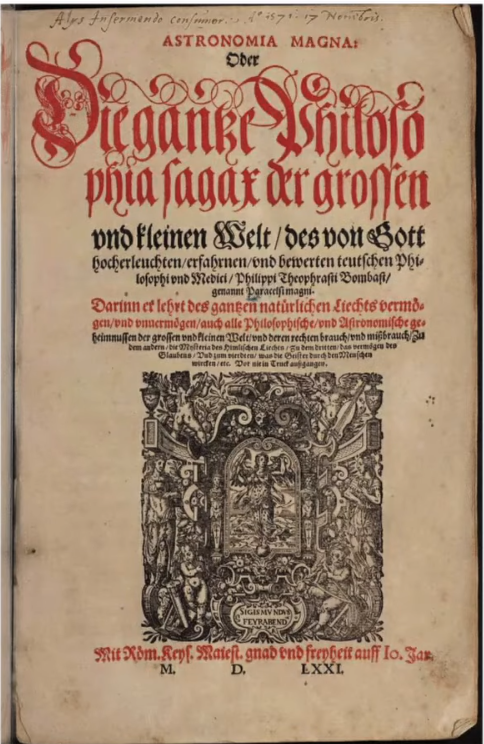 Alys Inserviendo consumor. Aº 1571. 17 Novēbris.
ASTRONOMIA MAGNA:
Oder
Die gantze Philoso
phia sagax der grossen
vnd kleinen Welt / des von Gott
hocherleuchten / erfahrnen / vnd bewerten teutschen Phi-
losophi vnd Medici / Philippi Theophrasti Bombast /
genannt Paracelsi magni.
Darinn er lehrt des gantzen natürlichen Liechts vermö-
gen / vnd vnuermögen / auch alle Philosophische / vnd Astronomische ge-
heimnussen der grossen vnd kleinen Welt / vnd deren rechten brauch / vnd mißbrauch / Zu
dem andern / die Mysteria des Himlischen Liechts / Zu dem dritten / das vermögen des
Glaubens / Vnd zum vierdten / was die Geister durch den Menschen
wircken / etc. Vor nie in Truck außgangen.
SIGISMVNDVS
FEYRABEND
Mit Röm. Keys. Maiest. gnad vnd freyheit auff 10. Jar.
M. D. LXXI.